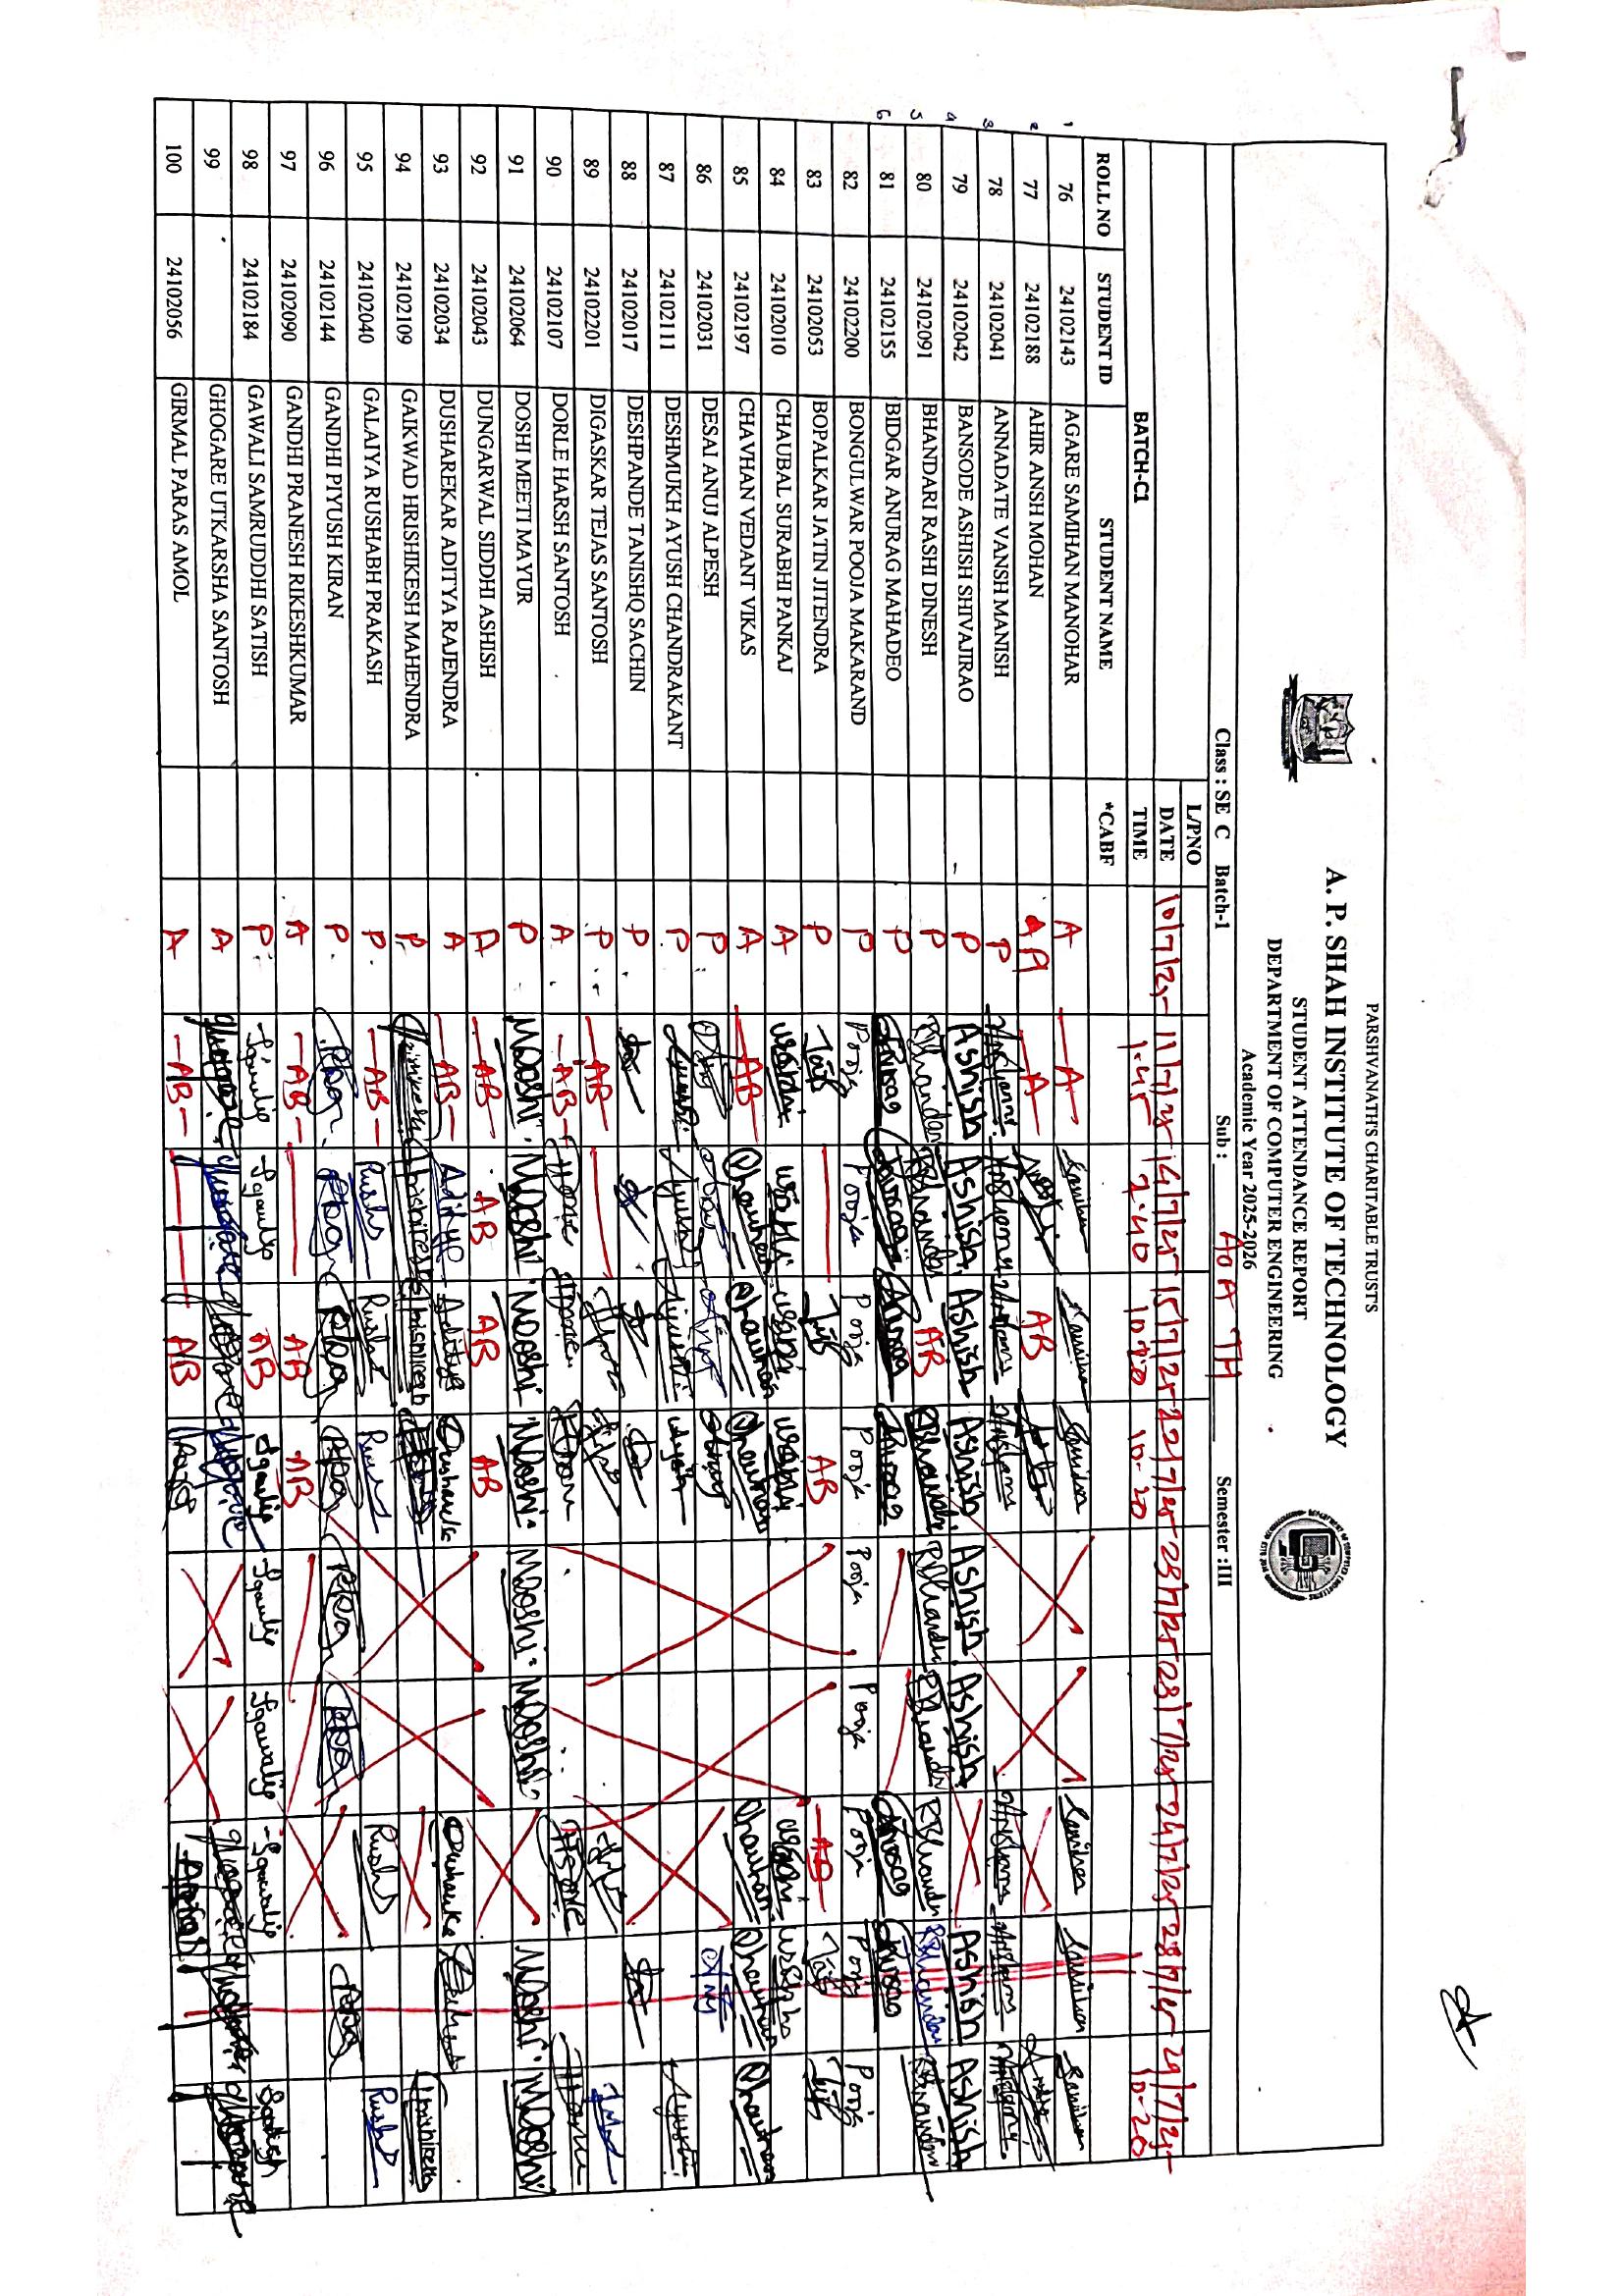 PARSHVANATH'S CHARITABLE TRUST'S
A. P. SHAH INSTITUTE OF TECHNOLOGY
STUDENT ATTENDANCE REPORT
DEPARTMENT OF COMPUTER ENGINEERING
Academic Year 2025-2026
Class : SE C Batch-1 Sub : AOA TH Semester :III
L/PNO
DATE 10/7/25 11/7/25 14/7/25 15/7/25 22/7/25 23/7/25 23/7/25 24/7/25 28/7/25 29/7/25
BATCH-C1 TIME 1.45 2.40 10.20 10-20 10-20
ROLL NO STUDENT ID STUDENT NAME *CABF
1 76 24102143 AGARE SAMIHAN MANOHAR A A Samihan Samihan Samihan Samihan Samihan Samihan
2 77 24102188 AHIR ANSH MOHAN A A AB
3 78 24102041 ANNADATE VANSH MANISH P
4 79 24102042 BANSODE ASHISH SHIVAJIRAO P Ashish Ashish Ashish Ashish Ashish Ashish Ashish Ashish
5 80 24102091 BHANDARI RASHI DINESH P RBhandari RBhandari AB RBhandari RBhandari RBhandari RBhandari RBhandari RBhandari
6 81 24102155 BIDGAR ANURAG MAHADEO P Anurag Anurag Anurag Anurag Anurag Anurag
82 24102200 BONGULWAR POOJA MAKARAND P Pooja Pooja Pooja Pooja Pooja Pooja Pooja Pooja Pooja
83 24102053 BOPALKAR JATIN JITENDRA P AB AB
84 24102010 CHAUBAL SURABHI PANKAJ A
85 24102197 CHAVHAN VEDANT VIKAS A AB Chauhan Chauhan Chauhan Chauhan Chauhan Chauhan
86 24102031 DESAI ANUJ ALPESH P Anuj
87 24102111 DESHMUKH AYUSH CHANDRAKANT P Ayush Ayush Ayush Ayush Ayush
88 24102017 DESHPANDE TANISHQ SACHIN P
89 24102201 DIGASKAR TEJAS SANTOSH P AB
90 24102107 DORLE HARSH SANTOSH A AB
91 24102064 DOSHI MEETI MAYUR P MDoshi MDoshi MDoshi MDoshi MDoshi MDoshi MDoshi MDoshi
92 24102043 DUNGARWAL SIDDHI ASHISH A AB AB AB AB
93 24102034 DUSHAREKAR ADITYA RAJENDRA A AB Aditya Aditya
94 24102109 GAIKWAD HRISHIKESH MAHENDRA P Hrishikesh Hrishikesh Hrishikesh Hrishikesh
95 24102040 GALAIYA RUSHABH PRAKASH P AB
96 24102144 GANDHI PIYUSH KIRAN P PKG PKG PKG PKG PKG PKG PKG
97 24102090 GANDHI PRANESH RIKESHKUMAR A AB AB AB
98 24102184 GAWALI SAMRUDDHI SATISH P Sgawali Sgawali AB Sgawali Sgawali Sgawali Sgawali
99 GHOGARE UTKARSHA SANTOSH A ghogare ghogare ghogare ghogare ghogare ghogare ghogare
100 24102056 GIRMAL PARAS AMOL A AB AB